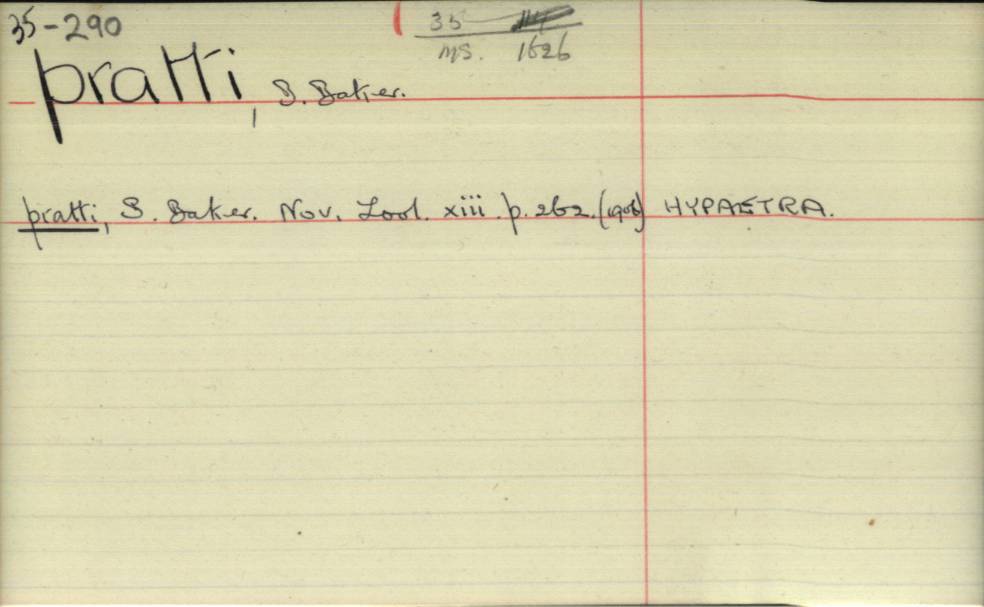 35-290
35
MS. 1626
pratti, B. Baker.
pratti, B. Baker. Nov. Zool. xiii. p. 262. (1906) HYPAETRA.